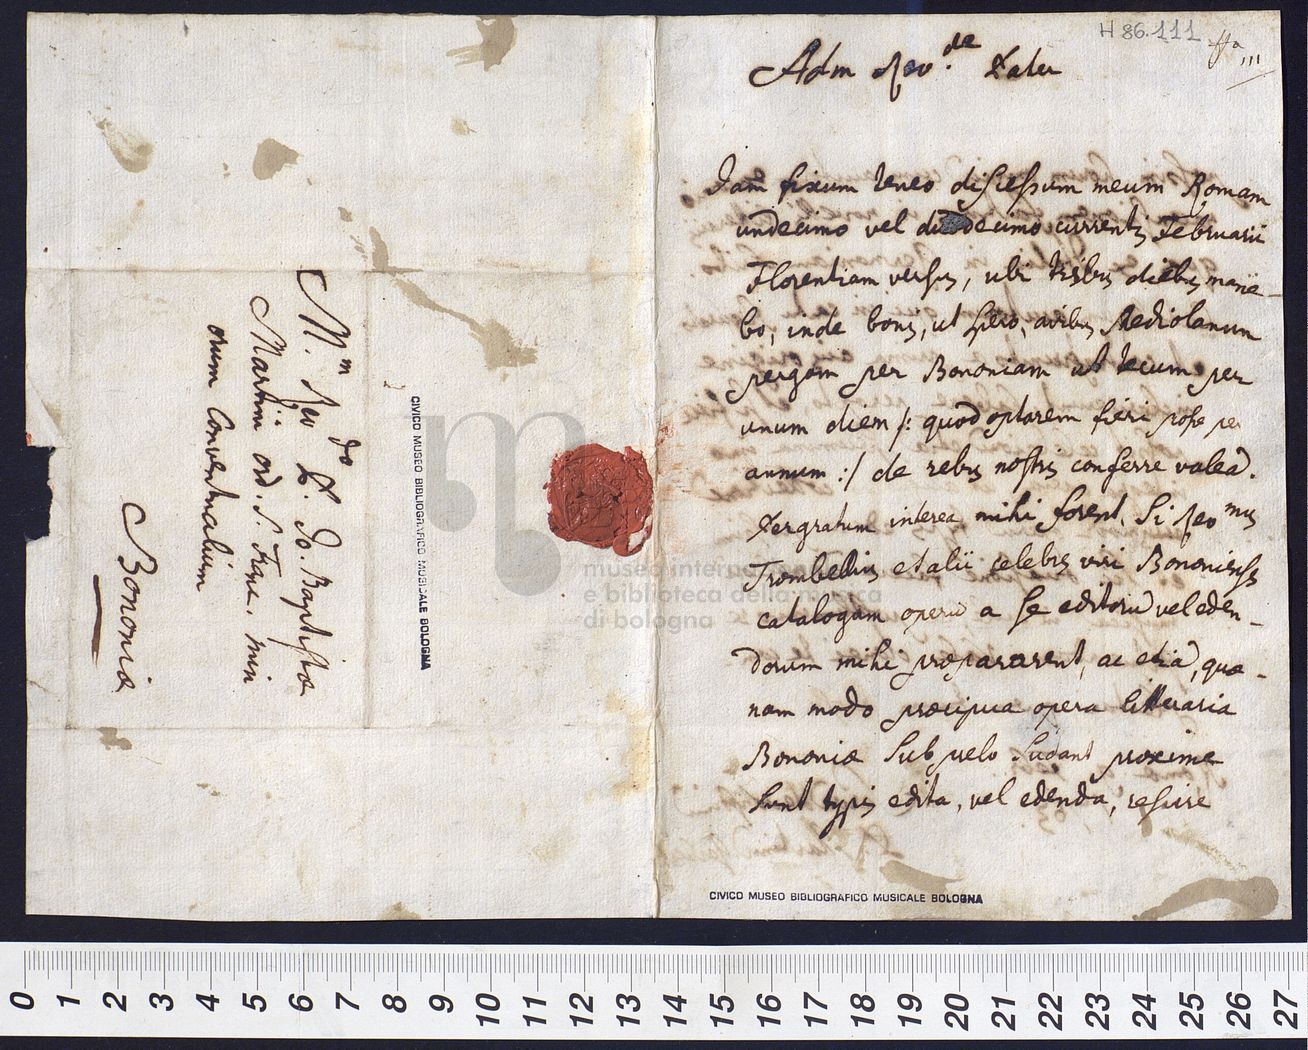 H 86.111
Hª 111
Adm Rev.de Pater
Jam fixum teneo discessum meum Romam
undecimo vel duodecimo currentis Februarii
Florentiam versus, ubi tribus diebus mane-
bo, inde bonis, ut spero, avibus Mediolanum
pergam per Bononiam ut tecum per
unum diem /: quod optarem fieri posse per
annum :/ de rebus nostris conferre valeā.
Pergratum interea mihi foret, si Revmus
Trombellius et alii celebres viri Bononienses
catalogum operū a se editorū vel eden-
dorum mihi præpararent, ac etiā, quæ-
nam modo præcipua opera litteraria
Bononiæ sub prelo sudant proxime
sunt typis edita, vel edenda, rescire
CIVICO MUSEO BIBLIOGRAFICO MUSICALE BOLOGNA
Revdo P. Jo. Baptistæ
Martini ord. S. Franc. min
orum Conventualium
Bononiæ
CIVICO MUSEO BIBLIOGRAFICO MUSICALE BOLOGNA
museo internazionale
e biblioteca della musica
di bologna
0 1 2 3 4 5 6 7 8 9 10 11 12 13 14 15 16 17 18 19 20 21 22 23 24 25 26 27